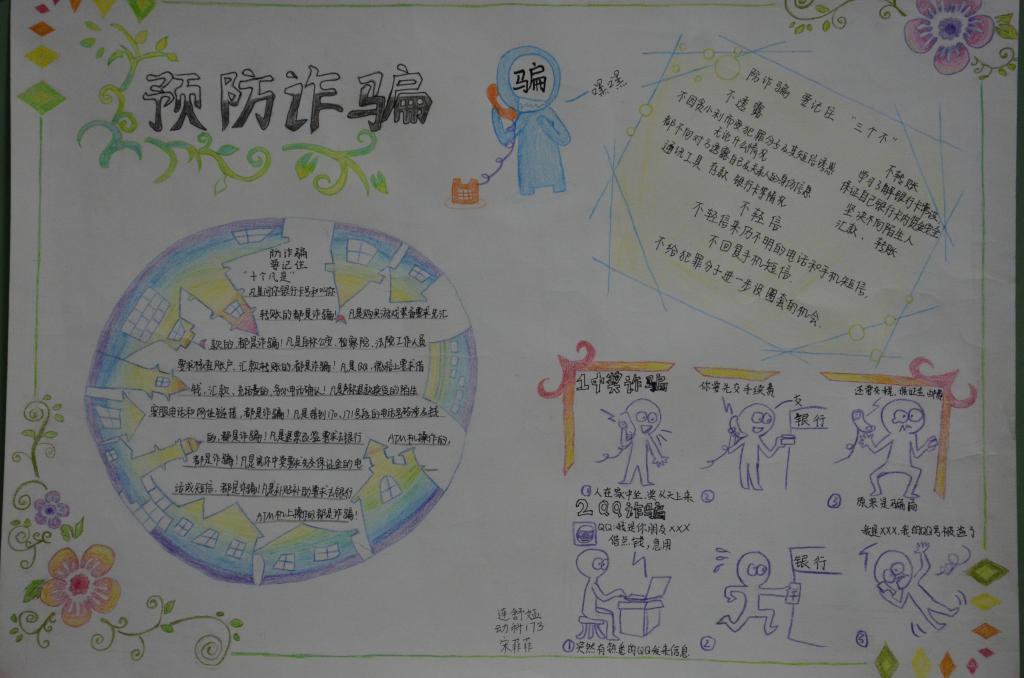 预防诈骗
骗
嘿嘿
防诈骗 要记住 "三个不"
不透露
不因贪小利而受犯罪分子或其短信诱惑
无论什么情况
都不向对方透露自己及关系人的身份信息
通讯工具 存款 银行卡等情况
不轻信
不轻信来历不明的电话和手机短信,
不回复手机短信.
不给犯罪分子进一步设圈套的机会.
不转账
学习了解银行卡常识
保证自己银行卡内资金安全
坚决不向陌生人
汇款、转账
防诈骗
要记住
"十个凡是"
凡是问你银行卡号和叫你
转账的都是诈骗!凡是购买游戏装备要求先汇
款的,都是诈骗!凡是自称公安、检察院、法院工作人员
要求核查账户、汇款转账的,都是诈骗!凡是QQ,微信上要求借
钱、汇款、充话费的,务必电话确认!凡是
客服电话和网住链接,都是诈骗!凡是接到170,171号段的电话号码
的,都是诈骗!凡是退票改签要求去银行
ATM机操作的,
都是诈骗!凡是购中奖要求先交保证金的电
话或短信,都是诈骗!凡是补贴补助要求去银行
ATM机上领的都是诈骗!
1中奖诈骗
你需先交手续费
还要交钱,保证金,邮费
交
银行
①人在家中坐,奖从天上来
②
③
原来是骗局
2QQ诈骗
QQ:我是你朋友XXX
借点钱,急用
银行
我是XXX,我的QQ号被盗了
①突然有熟悉的QQ发来信息
②
③
连舒娅
动科173
宋菲菲